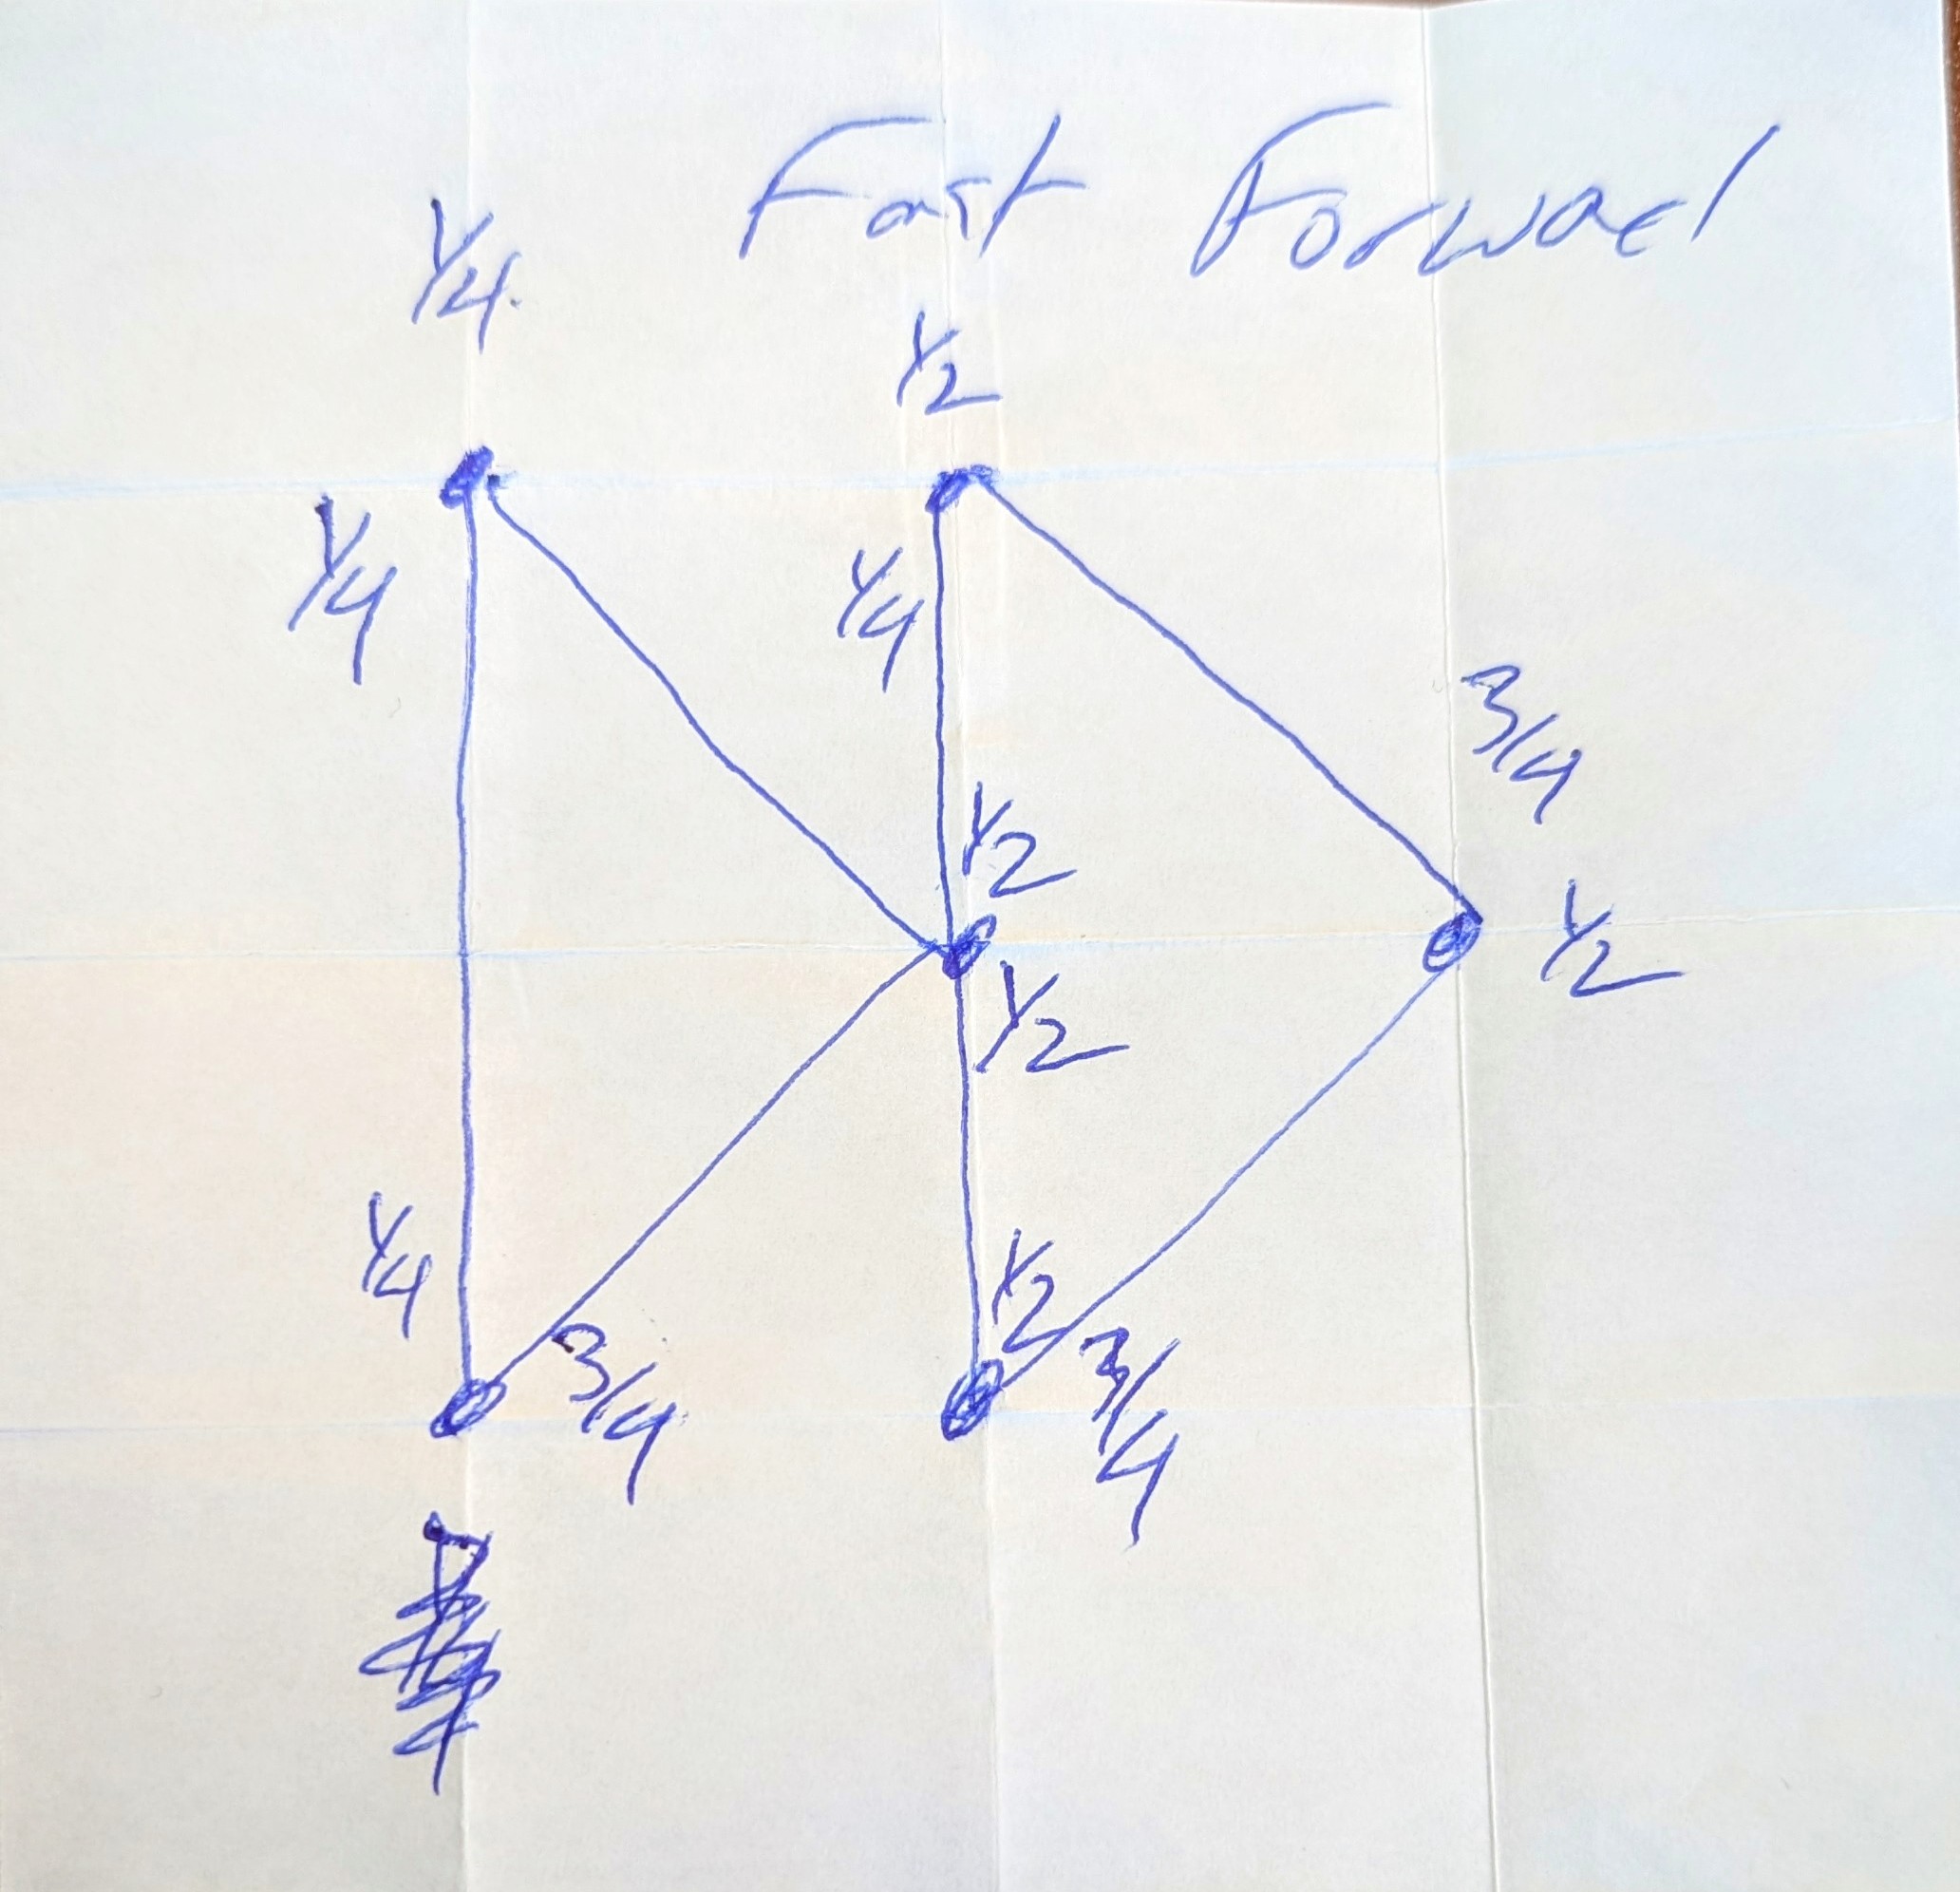 Fast Forward
1/4
1/2
1/4
1/4
3/4
1/2
1/2
1/2
1/4
1/2
3/4
3/4